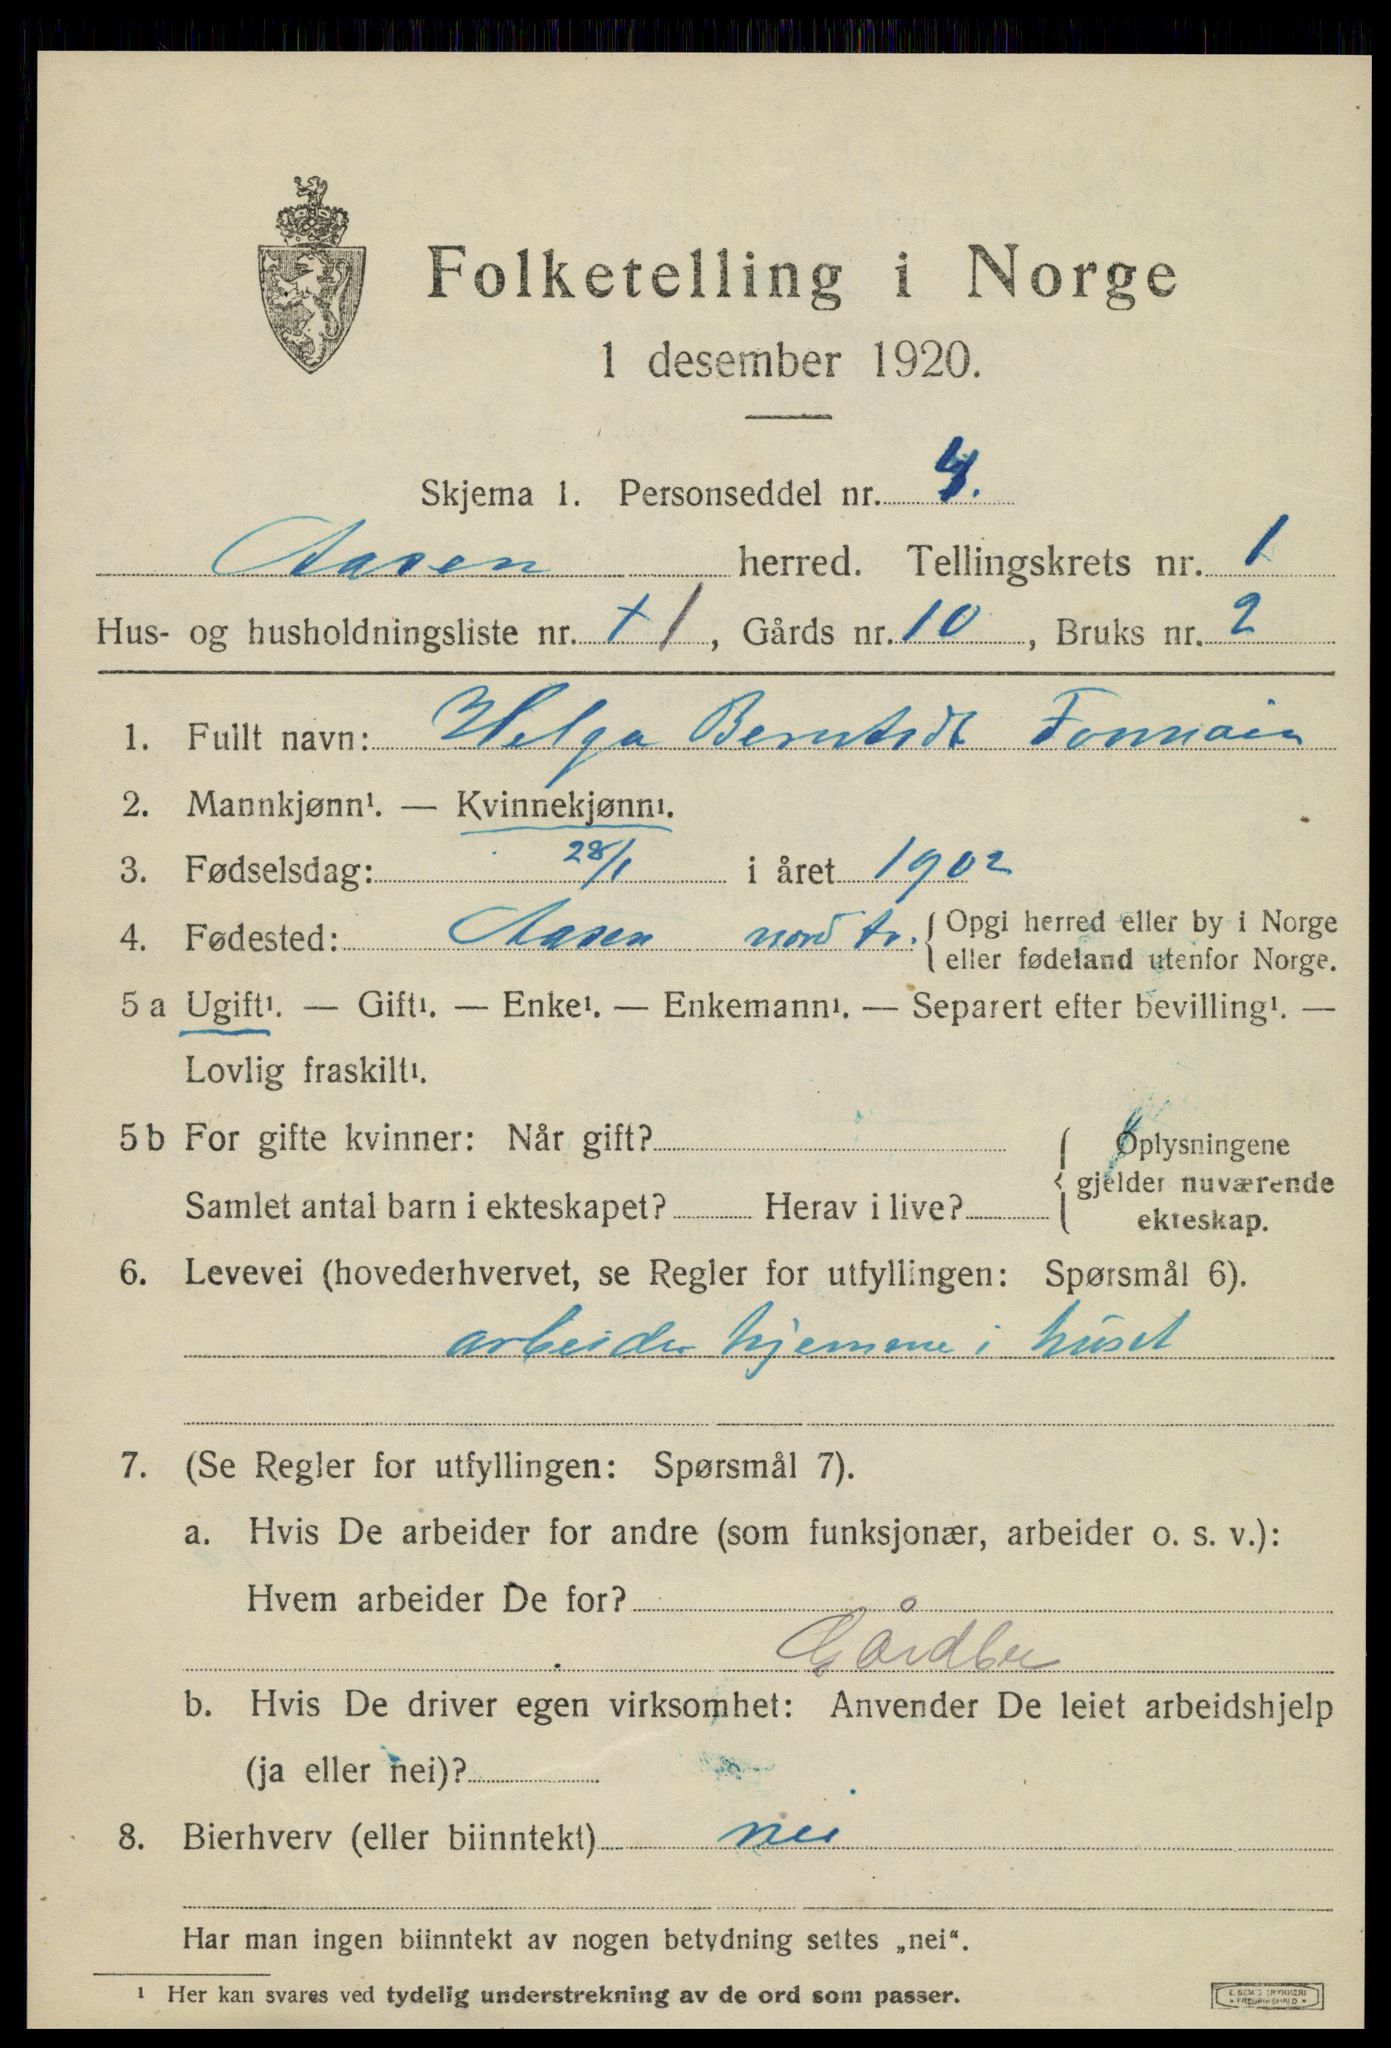 Folketelling i Norge
1 desember 1920.
Skjema 1. Personseddel nr. 4.
Aasen herred. Tellingskrets nr. 1
Hus- og husholdningsliste nr. 1, Gårds nr. 10, Bruks nr. 2
1. Fullt navn: Helga Berntsdt
2. Mannkjønn¹. — Kvinnekjønn¹.
3. Fødselsdag: 28/1 i året 1902
4. Fødested: Aasen nord tr. { Opgi herred eller by i Norge
eller fødeland utenfor Norge.
5 a Ugift¹. — Gift¹. — Enke¹. — Enkemann¹. — Separert efter bevilling¹. —
Lovlig fraskilt¹.
5 b For gifte kvinner: Når gift? { Oplysningene
gjelder nuværende
Samlet antal barn i ekteskapet? Herav i live? ekteskap.
6. Levevei (hovederhvervet, se Regler for utfyllingen: Spørsmål 6).
arbeider hjemme i huset
7. (Se Regler for utfyllingen: Spørsmål 7).
a. Hvis De arbeider for andre (som funksjonær, arbeider o. s. v.):
Hvem arbeider De for?
Gårdbr
b. Hvis De driver egen virksomhet: Anvender De leiet arbeidshjelp
(ja eller nei)?
8. Bierhverv (eller biinntekt) nei
Har man ingen biinntekt av nogen betydning settes „nei“.
¹ Her kan svares ved tydelig understrekning av de ord som passer.